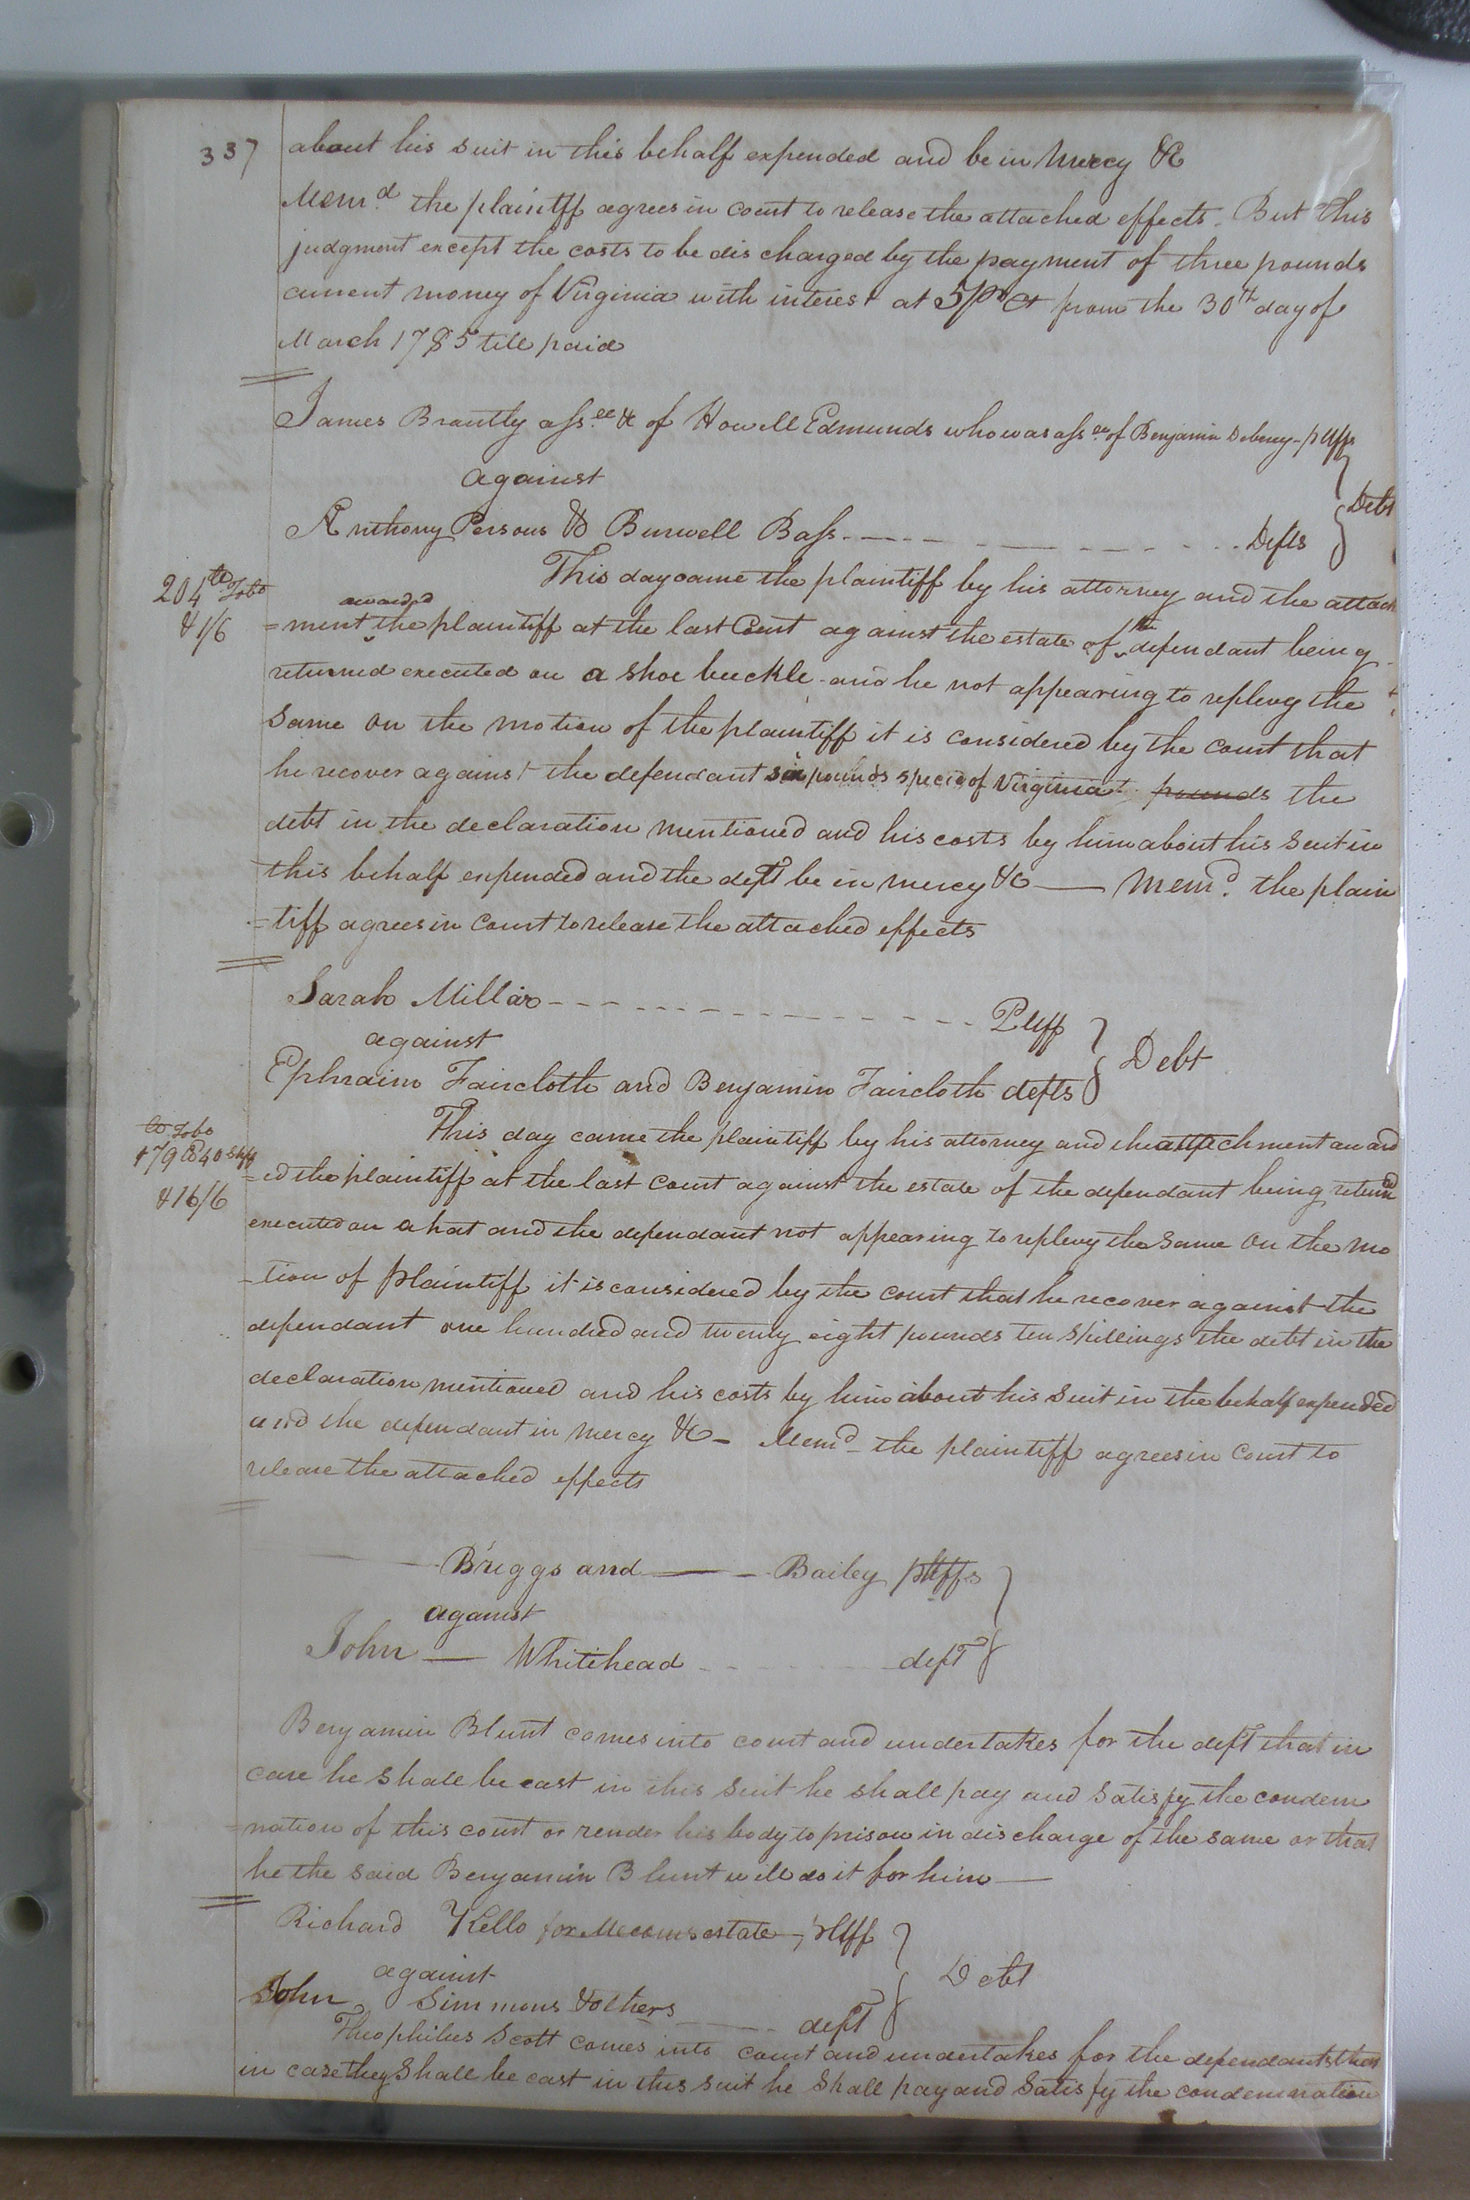 337
about his suit in this behalf expended and be in mercy &c
Memd. the plaintff agrees in court to release the attached effects. But this
judgment except the costs to be discharged by the payment of three pounds
current money of Virginia with interest at 5 pr Ct from the 30th day of
March 1785 till paid
James Brantly assee. &c of Howell Edmunds who was assee of Benjamin Deberry - pltffs
against
Debt
Anthony Persons & Burwell Bass. Defts
This day came the plaintiff by his attorney and the attach
204 lb Tobo
& 1/6
awarded
=ment the plaintiff at the last Court against the estate of the defendant being
returned executed on a shoe buckle and he not appearing to replevy the
Same on the motion of the plaintiff it is considered by the court that
he recover against the defendant six pounds specie of Virginia pounds the
debt in the declaration mentioned and his costs by him about his suit in
this behalf expended and the deft be in mercy &c — Memd. the plain
=tiff agrees in Court to release the attached effects
Sarah Millar Pltff
against
Debt
Ephraim Faircloth and Benjamin Faircloth defts
This day came the plaintiff by his attorney and the attachment award
lb Tobo
& 16/6
=ed the plaintiff at the last Court against the estate of the defendant being returnd
executed on a hat and the defendant not appearing to replevy the Same on the mo
-tion of plaintiff it is considered by the court that he recover against the
defendant one hundred and twenty eight pounds ten Shillings the debt in the
declaration mentioned and his costs by him about his Suit in the behalf expended
and the defendant in mercy &c - Memd - the plaintiff agrees in Court to
release the attached effects
— Briggs and — Bailey pltffs
against
John — Whitehead deft
Benjamin Blunt comes into court and undertakes for the deft that in
case he Shall be cast in this Suit he shall pay and Satisfy the condem
=nation of this court or render his body to prison in discharge of the same or that
he the said Benjamin Blunt will do it for him —
Richard Kello for estate pltff
against
Debt
John Simmons & others deft
Theophilus Scott comes into court and undertakes for the defendants that
in case they Shall be cast in this suit he Shall pay and Satisfy the condemnation